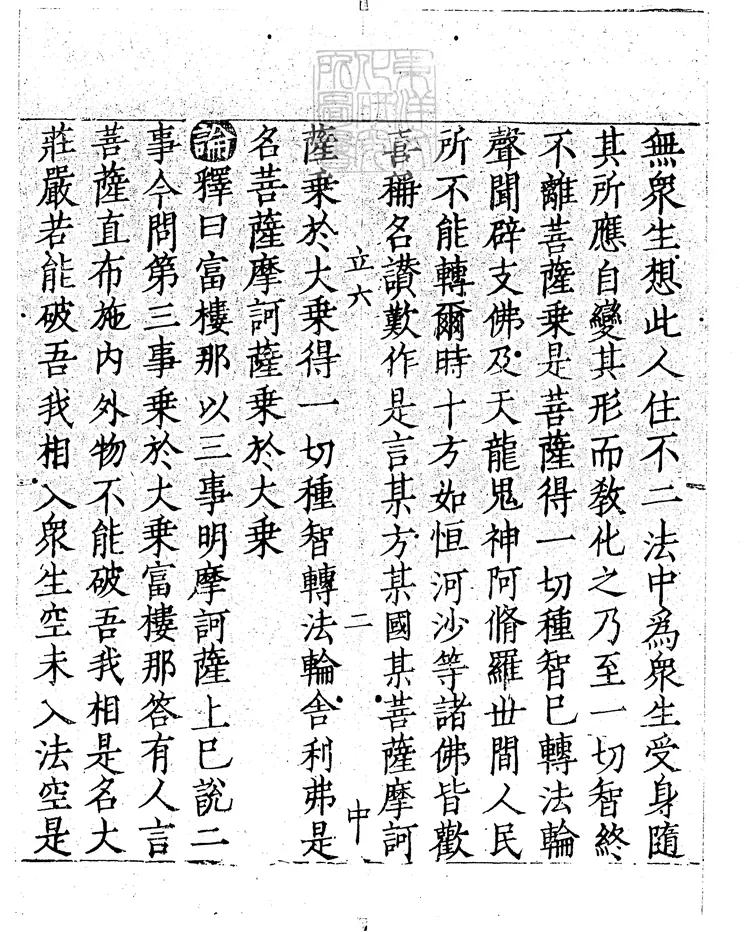 無衆生想此人住不二法中爲衆生受身隨
其所應自變其形而教化之乃至一切智終
不離菩薩乗是菩薩得一切種智已轉法輪
聲聞辟支佛及天龍鬼神阿脩羅丗間人民
所不能轉爾時十方如恒河沙等諸佛皆歡
喜稱名讃歎作是言某方某國某菩薩摩訶
立六 二 中
薩乗於大乗得一切種智轉法輪舍利弗是
名菩薩摩訶薩乗於大乗
論釋曰富樓那以三事明摩訶薩上已說二
事今問第三事乗於大乗富樓那答有人言
菩薩直布施内外物不能破吾我相是名大
莊嚴若能破吾我相入衆生空未入法空是